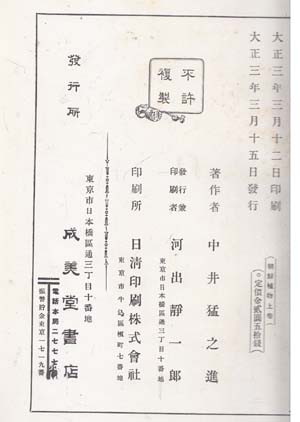 大正三年三月十二日印刷
大正三年三月十五日發行
朝鮮植物上卷
定價金貳圓五拾錢
不許
複製
著作者 中井猛之進
發行兼
印刷者 河出靜一郎
東京市日本橋區通三丁目十番地
印刷所 日清印刷株式會社
東京市牛込區榎町七番地
發行所
東京市日本橋區通三丁目十番地
成美堂書店
電話本局二七七七番
振替貯金東京一七一九番